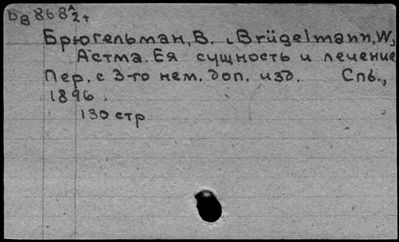 DB 868 A/2+
Брюгельман, В. (Brügelmann, W.,
Астма. Ея сущность и лечение
Пер. с 3-го нем. доп. изд. Спб.,
1896.
130 стр